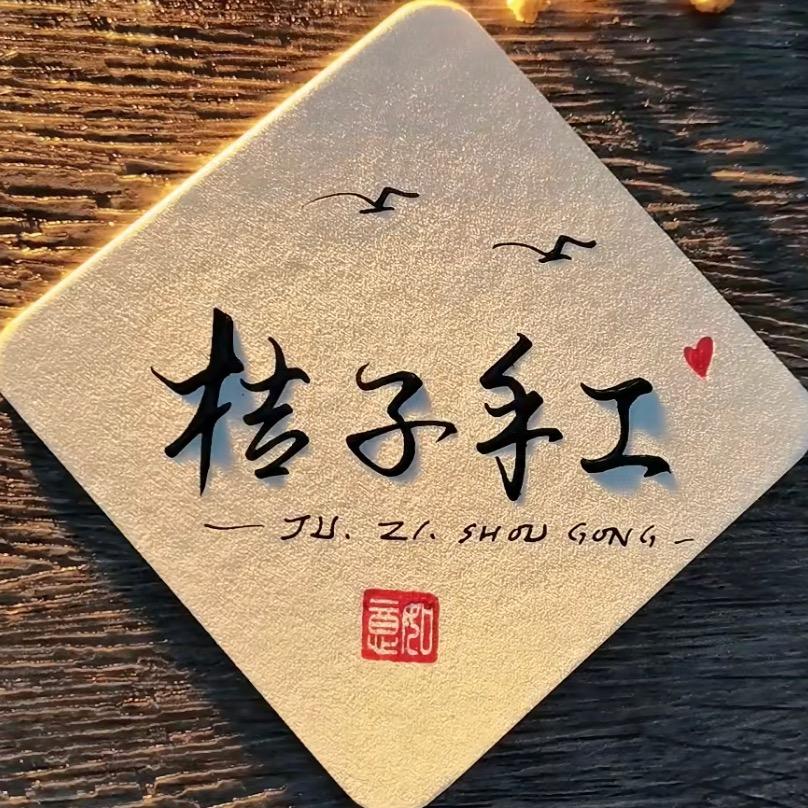 桔子手工
— JU. ZI. SHOU GONG —
如意